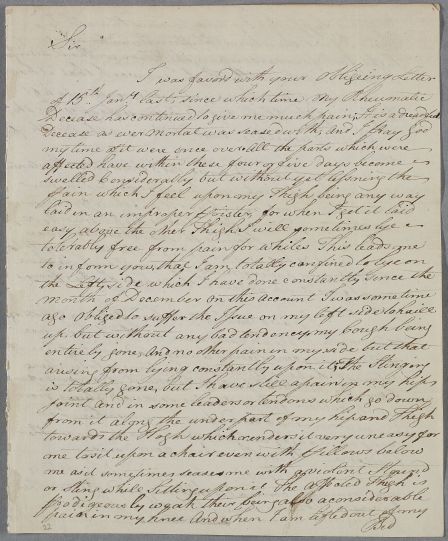 Sir
I was favord with your Obligeing Letter
of 15th Janry last, since which time my Rheumatic
Decease has continued to give me much pain, It is a dreadful
Decease as ever Mortal was seased with, and I pray God
my time of it were once over all the parts which were
affected have within these four or five days become
swelled Considerably but without yet lessning the
pain which I feel upon my Thigh being any way
laid in an improper for when I get it laid
easy above the other Thigh I will sometimes lye
tolerably free from pain for whiles This leads me
to inform you that I am totally confined to lye on
the Left side which I have done constantly since the
month of December on this account I was sometime
ago Obliged to suffer the on my left side to
up. but without any bad tendency, my Cough being
entirely gone, And no other pain in my side but that
arising from lying constantly upon it, the Stinging
is totally gone, but I have still a pain in my hip
joint and in some leaders or tendons which go down
from it along the under part of my hip and Thigh
towards the Hogh which renders it very uneasy for
me to sit upon a chair even with pillows below
me as it sometimes seases me with a violent
or Sting while Sitting upon it The affected Thigh is
prodigeously weak their being also a considerable
pain in my knee And when I am lifted out of my
Bed
22